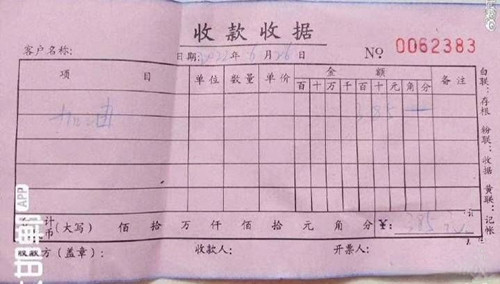 收款收据
客户名称: 日期:2022年6月26日 No 0062383
项目 单位 数量 单价 金额 备注
百 十 万 千 百 十 元 角 分
加油 385
计
币(大写) 佰 拾 万 仟 佰 拾 元 角 分 ¥: 385
收款方(盖章): 收款人: 开票人:
白联:存根 粉联:收据 黄联:记帐
APP